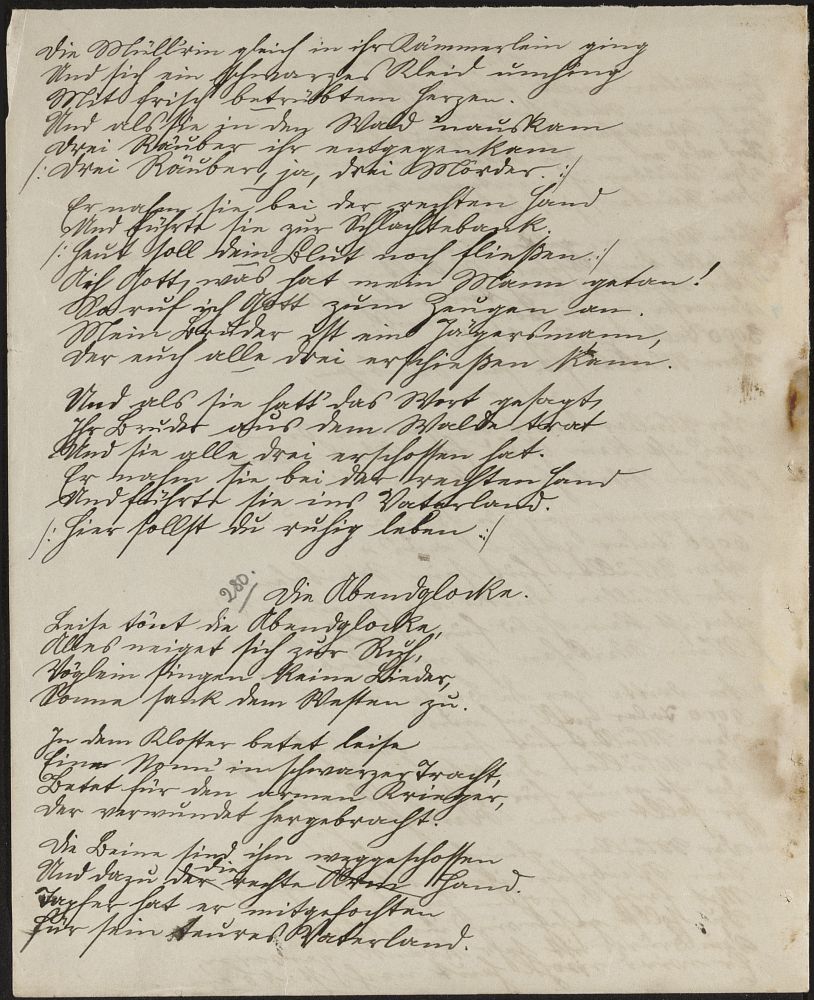 Die Müllrin gleich in ihr Kämmerlein ging
Und sich ein schwarzes Kleid umhing
Mit frisch betrübtem Herzen.
Und als sie in den Wald 'nauskam
Drei Räuber ihr entgegenkam
/: Drei Räuber, ja, drei Mörder. :/
Er nahm sie bei der rechten Hand
Und führte sie zur Schlachtebank.
/: Heut soll dein Blut noch fließen :/
Ach Gott, was hat mein Mann getan!
Da ruf ich Gott zum Zeugen an.
Mein Bruder ist ein Jägersmann,
Der euch alle drei erschießen kann.
Und als sie hatt' das Wort gesagt,
Ihr Bruder aus dem Walde trat
Und sie alle drei erschossen hat.
Er nahm sie bei der rechten Hand
Und führte sie ins Vaterland.
/: Hier sollst du ruhig leben :/
280. Die Abendglocke.
Leise tönt die Abendglocke,
Alles neiget sich zur Ruh,
Vöglein singen keine Lieder,
Sonne sank dem Westen zu.
In dem Kloster betet leise
Eine Nonn' im schwarzer Tracht,
Betet für den armen Krieger,
Der verwundet hergebracht.
Die Beine sind ihm weggeschossen
die
Und dazu der rechte Arm Hand.
Tapfer hat er mitgefochten
Für sein teures Vaterland.